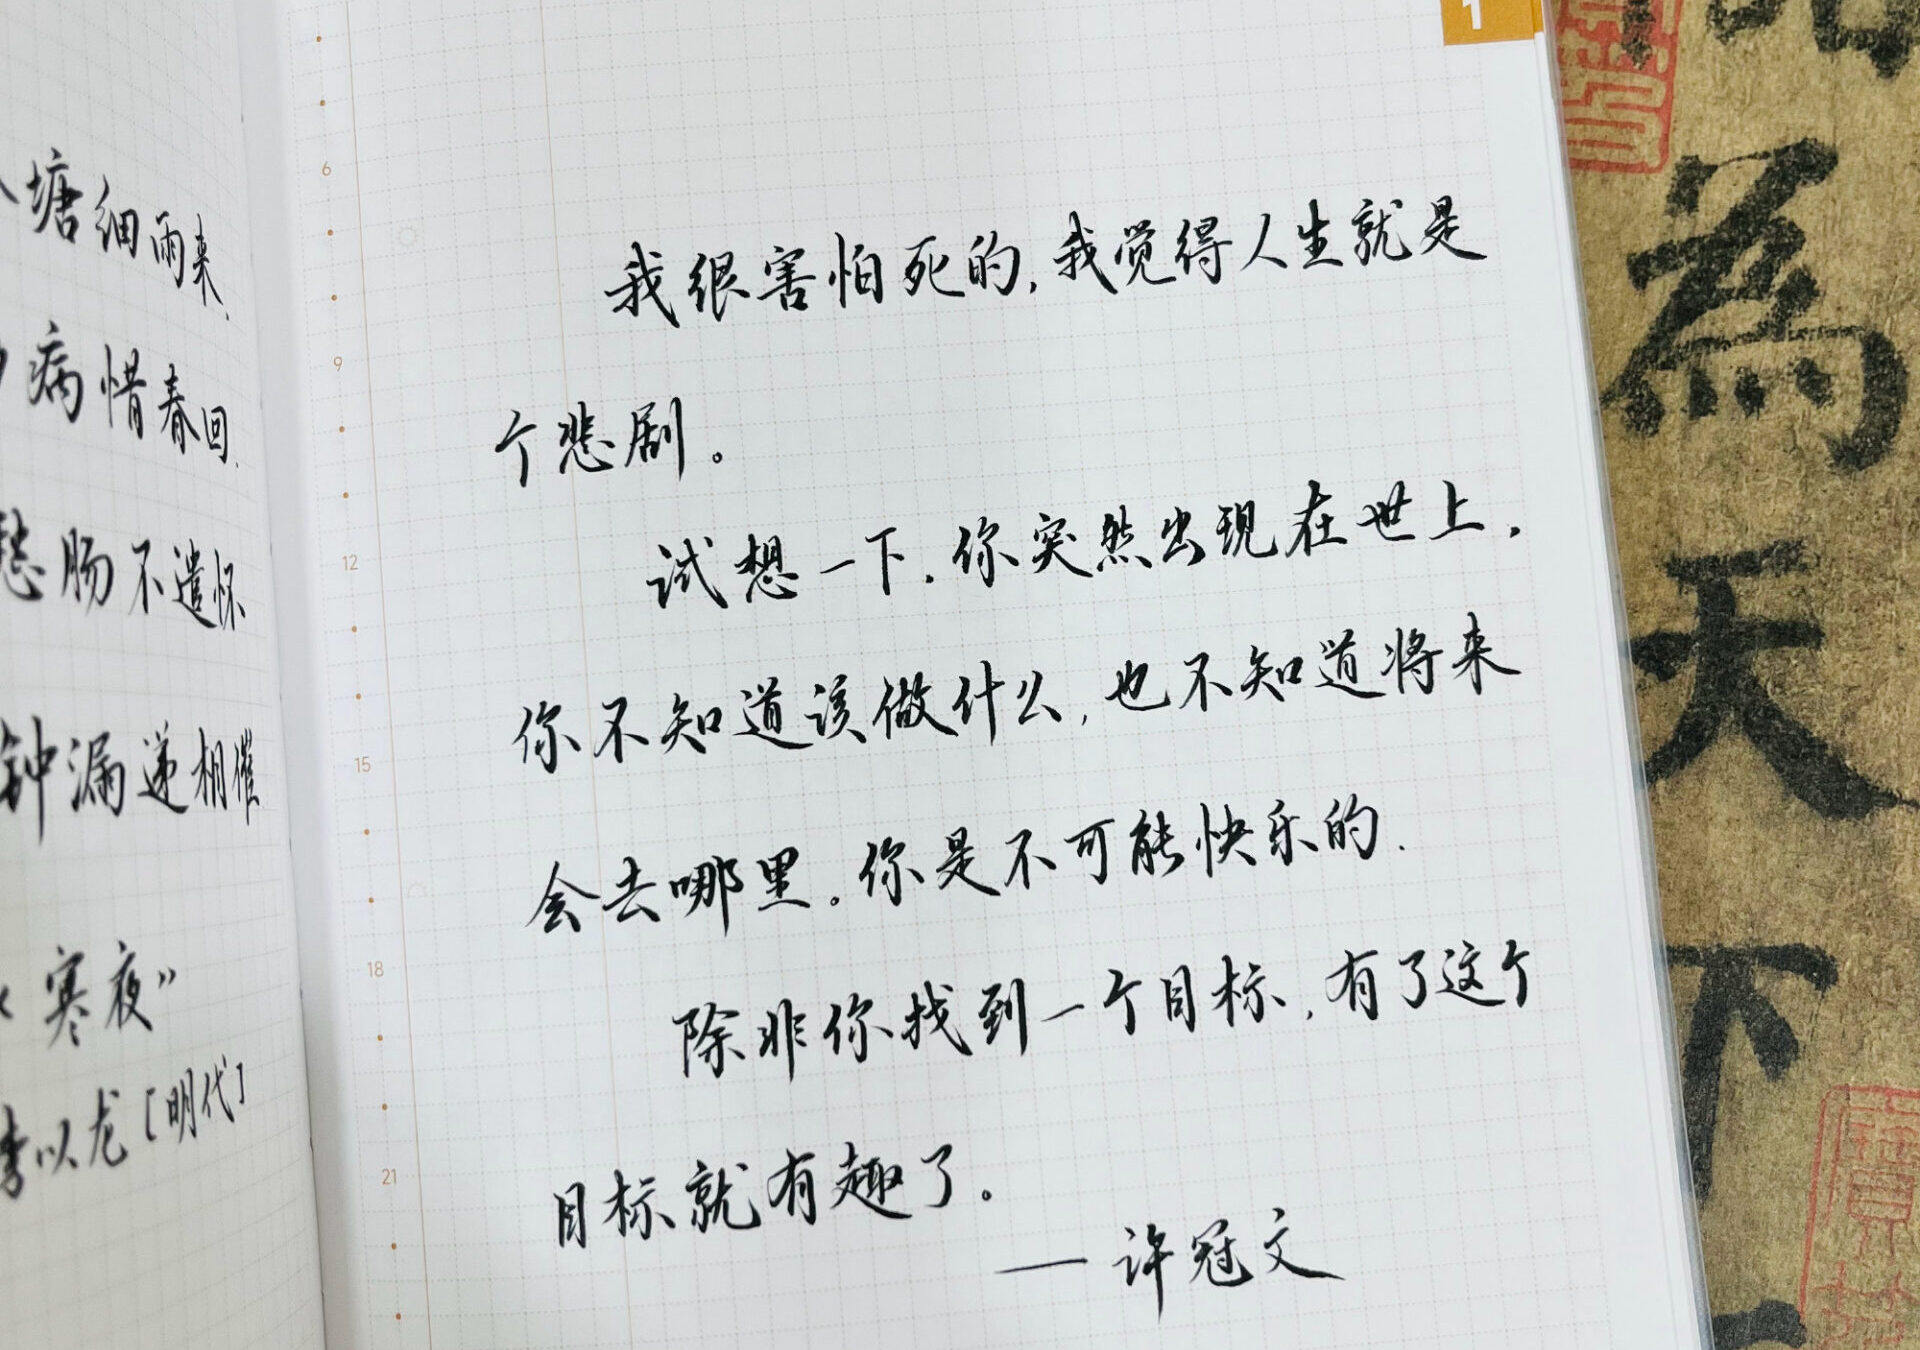 塘细雨来、
病惜春回.
愁肠不遣怀
钟漏递相催
寒夜”
李以龙［明代］
1
6
9
12
15
18
21
我很害怕死的,我觉得人生就是
个悲剧。
试想一下,你突然出现在世上,
你不知道该做什么,也不知道将来
会去哪里。你是不可能快乐的.
除非你找到一个目标,有了这个
目标就有趣了。
— 许冠文
為
天
下